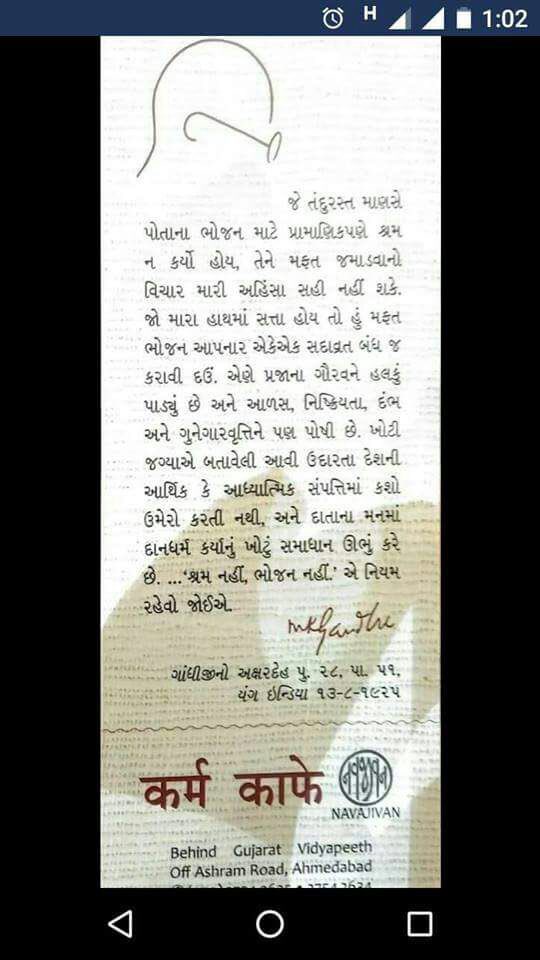 H 1:02
જે તંદુરસ્ત માણસે
પોતાના ભોજન માટે પ્રામાણિકપણે શ્રમ
ન કર્યો હોય, તેને મફત જમાડવાનો
વિચાર મારી અહિંસા સહી નહીં શકે.
જો મારા હાથમાં સત્તા હોય તો હું મફત
ભોજન આપનાર એકેએક સદાવ્રત બંધ જ
કરાવી દઉં. એણે પ્રજાના ગૌરવને હલકું
પાડ્યું છે અને આળસ, નિષ્ક્રિયતા, દંભ
અને ગુનેગારવૃત્તિને પણ પોષી છે. ખોટી
જગ્યાએ બતાવેલી આવી ઉદારતા દેશની
આર્થિક કે આધ્યાત્મિક સંપત્તિમાં કશો
ઉમેરો કરતી નથી, અને દાતાના મનમાં
દાનધર્મ કર્યાનું ખોટું સમાધાન ઊભું કરે
છે. ...‘શ્રમ નહીં, ભોજન નહીં.’ એ નિયમ
રહેવો જોઈએ.
MKGandhi
ગાંધીજીનો અક્ષરદેહ પુ. ૨૮, પા. ૫૧,
યંગ ઇન્ડિયા ૧૩-૮-૧૯૨૫
कर्म काफे
નવજીવન
NAVAJIVAN
Behind Gujarat Vidyapeeth
Off Ashram Road, Ahmedabad